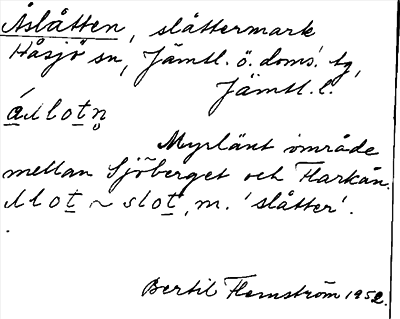 Åslåtten, slåttermark
Håsjö sn, Jämtl. ö. doms. tg,
Jämtl. l.
Myrlänt område
mellan Sjöberget och Harkån.
~ slot, m. 'slåtter'.
Bertil Flemström 1952.